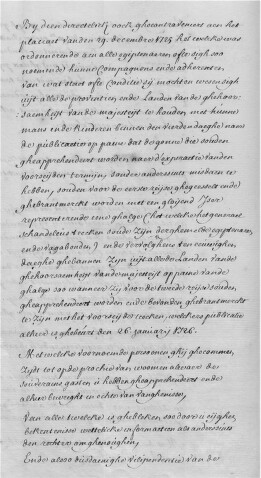 By deen directelyck oock ghecontravenieert aen het
placcaet van den 19. december 1725 het welcke was
ordonnerende aen alle egiptenaeren ofte sigh soo
noemende hunne Compagnons ende adherenten
van wat staet ofte Conditie sy mochten wesen sigh
uijt alle de provintien ende Landen vande ghehoor-
saemheijt vande majesteijt te houden met hunne
mans ende kinderen binnen den vierden daghe naer
de publicatie op paine dat de gonne die souden
gheapprehendeert worden naer d'expiratie vanden
voorseijden termijn, sonder andersints misdaen te
hebben, souden voor de eerste reijse ghegeesselt ende
ghebrantmerckt worden met een gloijend Iser
representerende eene ghalge (het welcke het generael
teecken soude zijn derghemelde egiptenaeren
ende vagabonden) ende vervolghens ten eeuwighen
daeghe ghebannen zijn uijt alle de Landen vande
ghehoorsaemheijt vande majesteijt op paene vande
ghalge soo wanneer zij voor de tweede reijse souden
gheapprehendeert worden ende bevonden ghebrantmerckt
te zijn met het voorseijde teecken, welcke publicatie
alhier is ghebeurt den 26 january 1726.
Met welcke voornoemde persoonen ghij ghecommen
zijdt tot op de prochie van
souveraine ghapprehendeert ende
alhier ende achter van langhemeer,
Van alle twelcke is ghebleken soo door u eijghen
bekentenisse wettelicke informatien als andersints
den rechter ghenoughsaem,
Ende alsoo van de